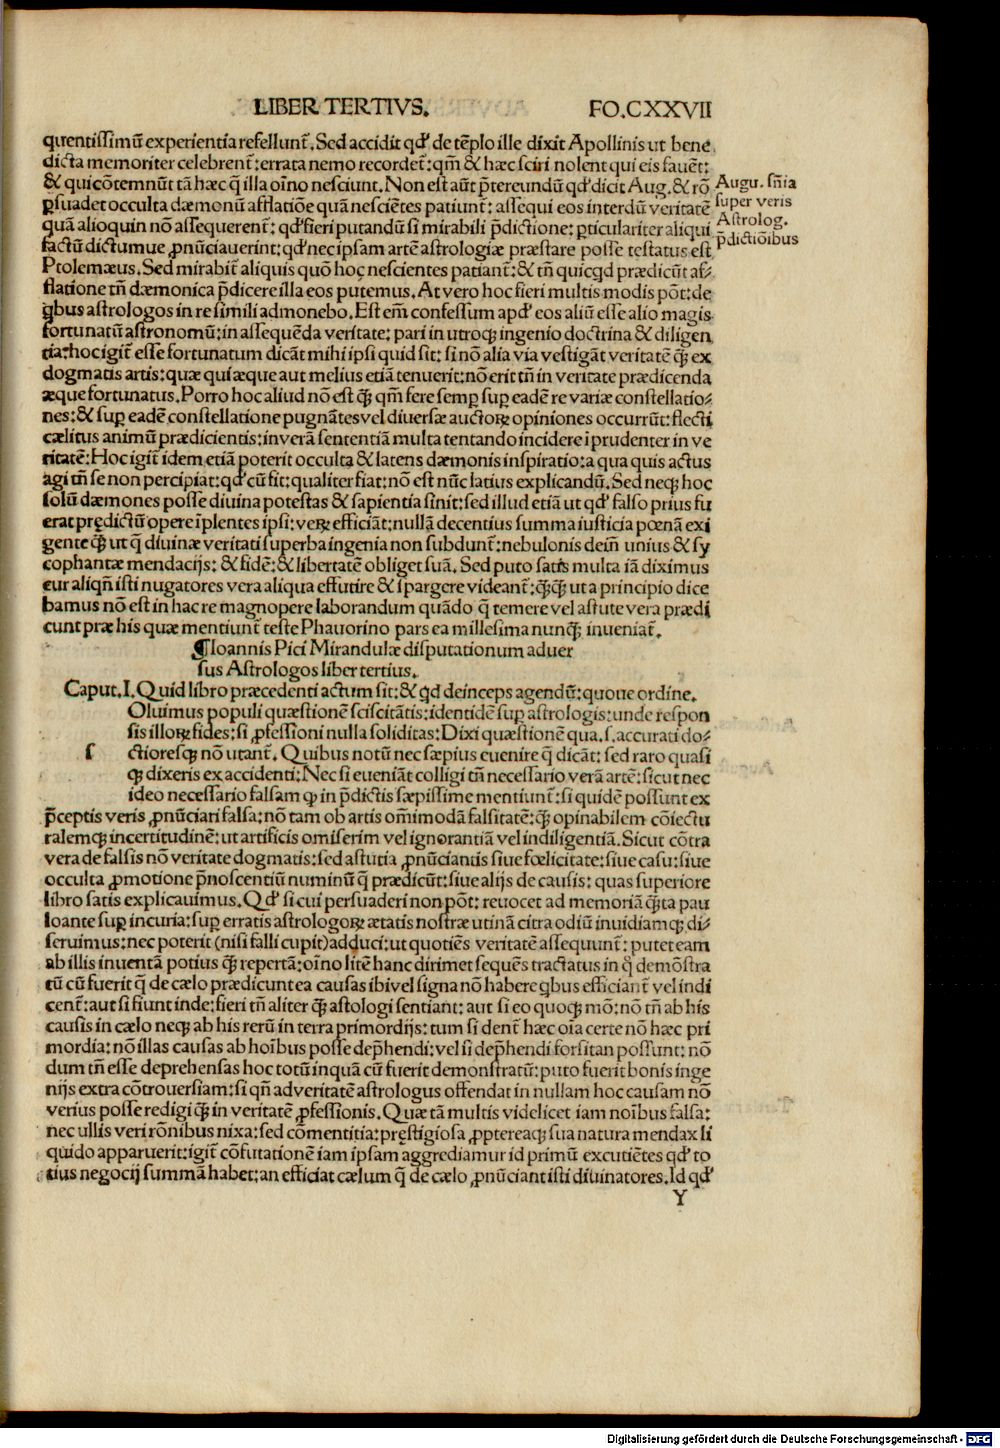 LIBER TERTIVS. FO.CXXVII
quentissimũ experientia refellunt̃. Sed accidit qd̕ de tẽplo ille dixit Apollinis ut bene
dicta memoriter celebrent̃: errata nemo recordet̃: qm̃ & hæc sciri nolent qui eis fauẽt:
& qui cõtemnũt tã hæc q̃ illa oĩno nesciunt. Non est aũt p̃tereundũ qd̕ dicit Aug. & rõ
ꝑsuadet occulta dæmonũ afflatiõe quã nesciẽtes patiunt̃: assequi eos interdũ veritatẽ
quã alioquin nõ assequerent̃: qd̕ fieri putandũ si mirabili p̃dictione: ꝑticulariter aliqui
factũ dictumue ꝓnũciauerint: qd̕ nec ipsam artẽ astrologiæ præstare posse testatus est
Ptolemæus. Sed mirabit̃ aliquis quõ hoc nescientes patiant̃: & tñ quicqd prædicũt af-
flatione tñ dæmonica p̃dicere illa eos putemus. At vero hoc fieri multis modis põt: de
qbus astrologos in re simili admonebo. Est em̃ confessum apd̕ eos aliũ esse alio magis
fortunatũ astronomũ: in assequẽda veritate: pari in utroqꝫ ingenio doctrina & diligen
tia: hoc igit̃ esse fortunatum dicãt mihi ipsi quid sit: si nõ alia via vestigãt veritatẽ qꝫ̃ ex
dogmatis artis: quæ qui æque aut melius etiã tenuerit: nõ erit tñ in veritate prædicenda
æque fortunatus. Porro hoc aliud nõ est qꝫ̃ qm̃ fere semꝑ suꝑ eadẽ re variæ constellatio-
nes: & suꝑ eadẽ constellatione pugnãtes vel diuersæ auctoꝝ opiniones occurrũt: flecti
cælitus animũ prædicientis: in verã sententiã multa tentando incidere iprudenter in ve
ritatẽ: Hoc igit̃ idem etiã poterit occulta & latens dæmonis inspiratio: a qua quis actus
agi tñ se non percipiat: qd̕ cũ fit: qualiter fiat: nõ est nũc latius explicandũ. Sed neqꝫ hoc
solũ dæmones posse diuina potestas & sapientia sinit: sed illud etiã ut qd̕ falso prius fu
erat prędictũ opere ĩplentes ipsi: veꝝ efficiãt: nullã decentius summa iusticia pœnã exi
gente qꝫ̃ ut q̃ diuinæ veritati superba ingenia non subdunt̃: nebulonis deĩñ unius & sy
cophantæ mendacijs: & fidẽ: & libertatẽ obliget suã. Sed puto satis multa iã diximus
cur aliqñ isti nugatores vera aliqua effutire & spargere videant̃: qꝫ̃qꝫ̃ ut a principio dice
bamus nõ est in hac re magnopere laborandum quãdo q̃ temere vel astute vera prædi
cunt præ his quæ mentiunt̃ teste Phauorino pars ea millesima nunqꝫ̃ inueniat̃.
¶Ioannis Pici Mirandulæ disputationum aduer
sus Astrologos liber tertius.
Caput. I. Quid libro præcedenti actum sit: & qd deinceps agendũ: quoue ordine.
Oluimus populi quæstionẽ sciscitãtis: identidẽ suꝑ astrologis: unde respon
sis illoꝝ fides: si ꝓfessioni nulla soliditas: Dixi quæstionẽ qua. s. accurati do-
s ctioresqꝫ nõ utant̃. Quibus notũ nec sæpius euenire q̃ dicãt: sed raro quasi
qꝫ dixeris ex accidenti: Nec si eueniãt colligi tñ necessario verã artẽ: sicut nec
ideo necessario falsam ꝙ in p̃dictis sæpissime mentiunt̃: si quidẽ possunt ex
p̃ceptis veris ꝓnũciari falsa: nõ tam ob artis om̃imodã falsitatẽ: qꝫ̃ opinabilem cõiectu
ralemqꝫ incertitudinẽ: ut artificis omiserim vel ignorantiã vel indiligentiã. Sicut cõtra
vera de falsis nõ veritate dogmatis: sed astutia ꝓnũciantis siue fœlicitate: siue casu: siue
occulta ꝓmotione p̃noscentiũ numinũ q̃ prædicũt: siue alijs de causis: quas superiore
libro satis explicauimus. Qd̕ si cui persuaderi non põt: reuocet ad memoriã qꝫ̃ta pau
loante suꝑ incuria: suꝑ erratis astrologoꝝ ætatis nostræ utinã citra odiũ inuidiamqꝫ di-
seruimus: nec poterit (nisi falli cupit) adduci: ut quotiẽs veritatẽ assequunt̃: putet eam
ab illis inuentã potius qꝫ̃ repertã: oĩno litẽ hanc dirimet sequẽs tractatus in q̃ demõstra
tũ cũ fuerit q̃ de cælo prædicunt ea causas ibi vel signa nõ habere qbus efficiant̃ vel indi
cent̃: aut si fiunt inde: fieri tñ aliter qꝫ̃ astologi sentiant: aut si eo quoqꝫ mõ: nõ tñ ab his
causis in cælo neqꝫ ab his rerũ in terra primordijs: tum si dent̃ hæc oĩa certe nõ hæc pri
mordia: nõ illas causas ab hoĩbus posse dep̃hendi: vel si dep̃hendi forsitan possunt: nõ
dum tñ esse deprehensas hoc totũ inquã cũ fuerit demonstratũ: puto fuerit bonis inge
nijs extra cõtrouersiam: si qñ ad veritatẽ astrologus offendat in nullam hoc causam nõ
verius posse redigi qꝫ̃ in veritatẽ ꝓfessionis. Quæ tã multis videlicet iam noĩbus falsa:
nec ullis veri rõnibus nixa: sed cõmentitia: pręstigiosa ꝓptereaqꝫ sua natura mendax li
quido apparuerit: igit̃ cõfutationẽ iam ipsam aggrediamur id primũ excutiẽtes qd̕ to
tius negocij summã habet: an efficiat cælum q̃ de cælo ꝓnũciant isti diuinatores. Id qd̕
Y
Augu. sñia
super veris
Astrolog.
p̃dictiõibus
Digitalisierung gefördert durch die Deutsche Forschungsgemeinschaft - DFG